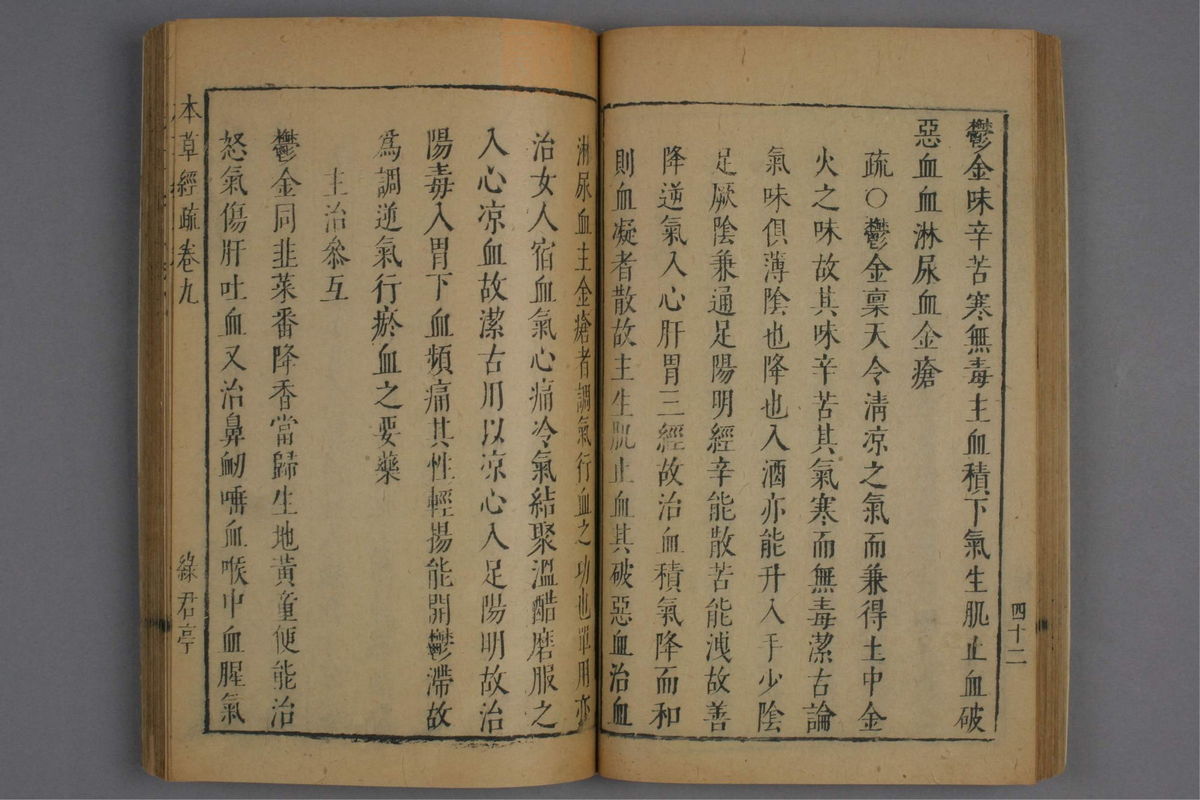 鬱金味辛苦寒無毒主血積下氣生肌止血破
惡血血淋尿血金瘡
疏○鬱金稟天令清凉之氣而兼得土中金
火之味故其味辛苦其氣寒而無毒潔古論
氣味俱薄陰也降也入酒亦能升入手少陰
足厥陰兼通足陽明經辛能散苦能洩故善
降逆氣入心肝胃三經故治血積氣降而和
則血凝者散故主生肌止血其破惡血治血
四十二
淋尿血主金瘡者調氣行血之功也單用亦
治女人宿血氣心痛冷氣結聚溫酷磨服之
入心凉血故潔古用以凉心入足陽明故治
陽毒入胃下血頻痛其性輕揚能開鬱滯故
為調逆氣行瘀血之要藥
主治參互
鬱金同韭菜番降香當歸生地黃童便能治
怒氣傷肝吐血又治鼻衂嚥血喉中血腥氣
本草經疏卷九
綠君亭